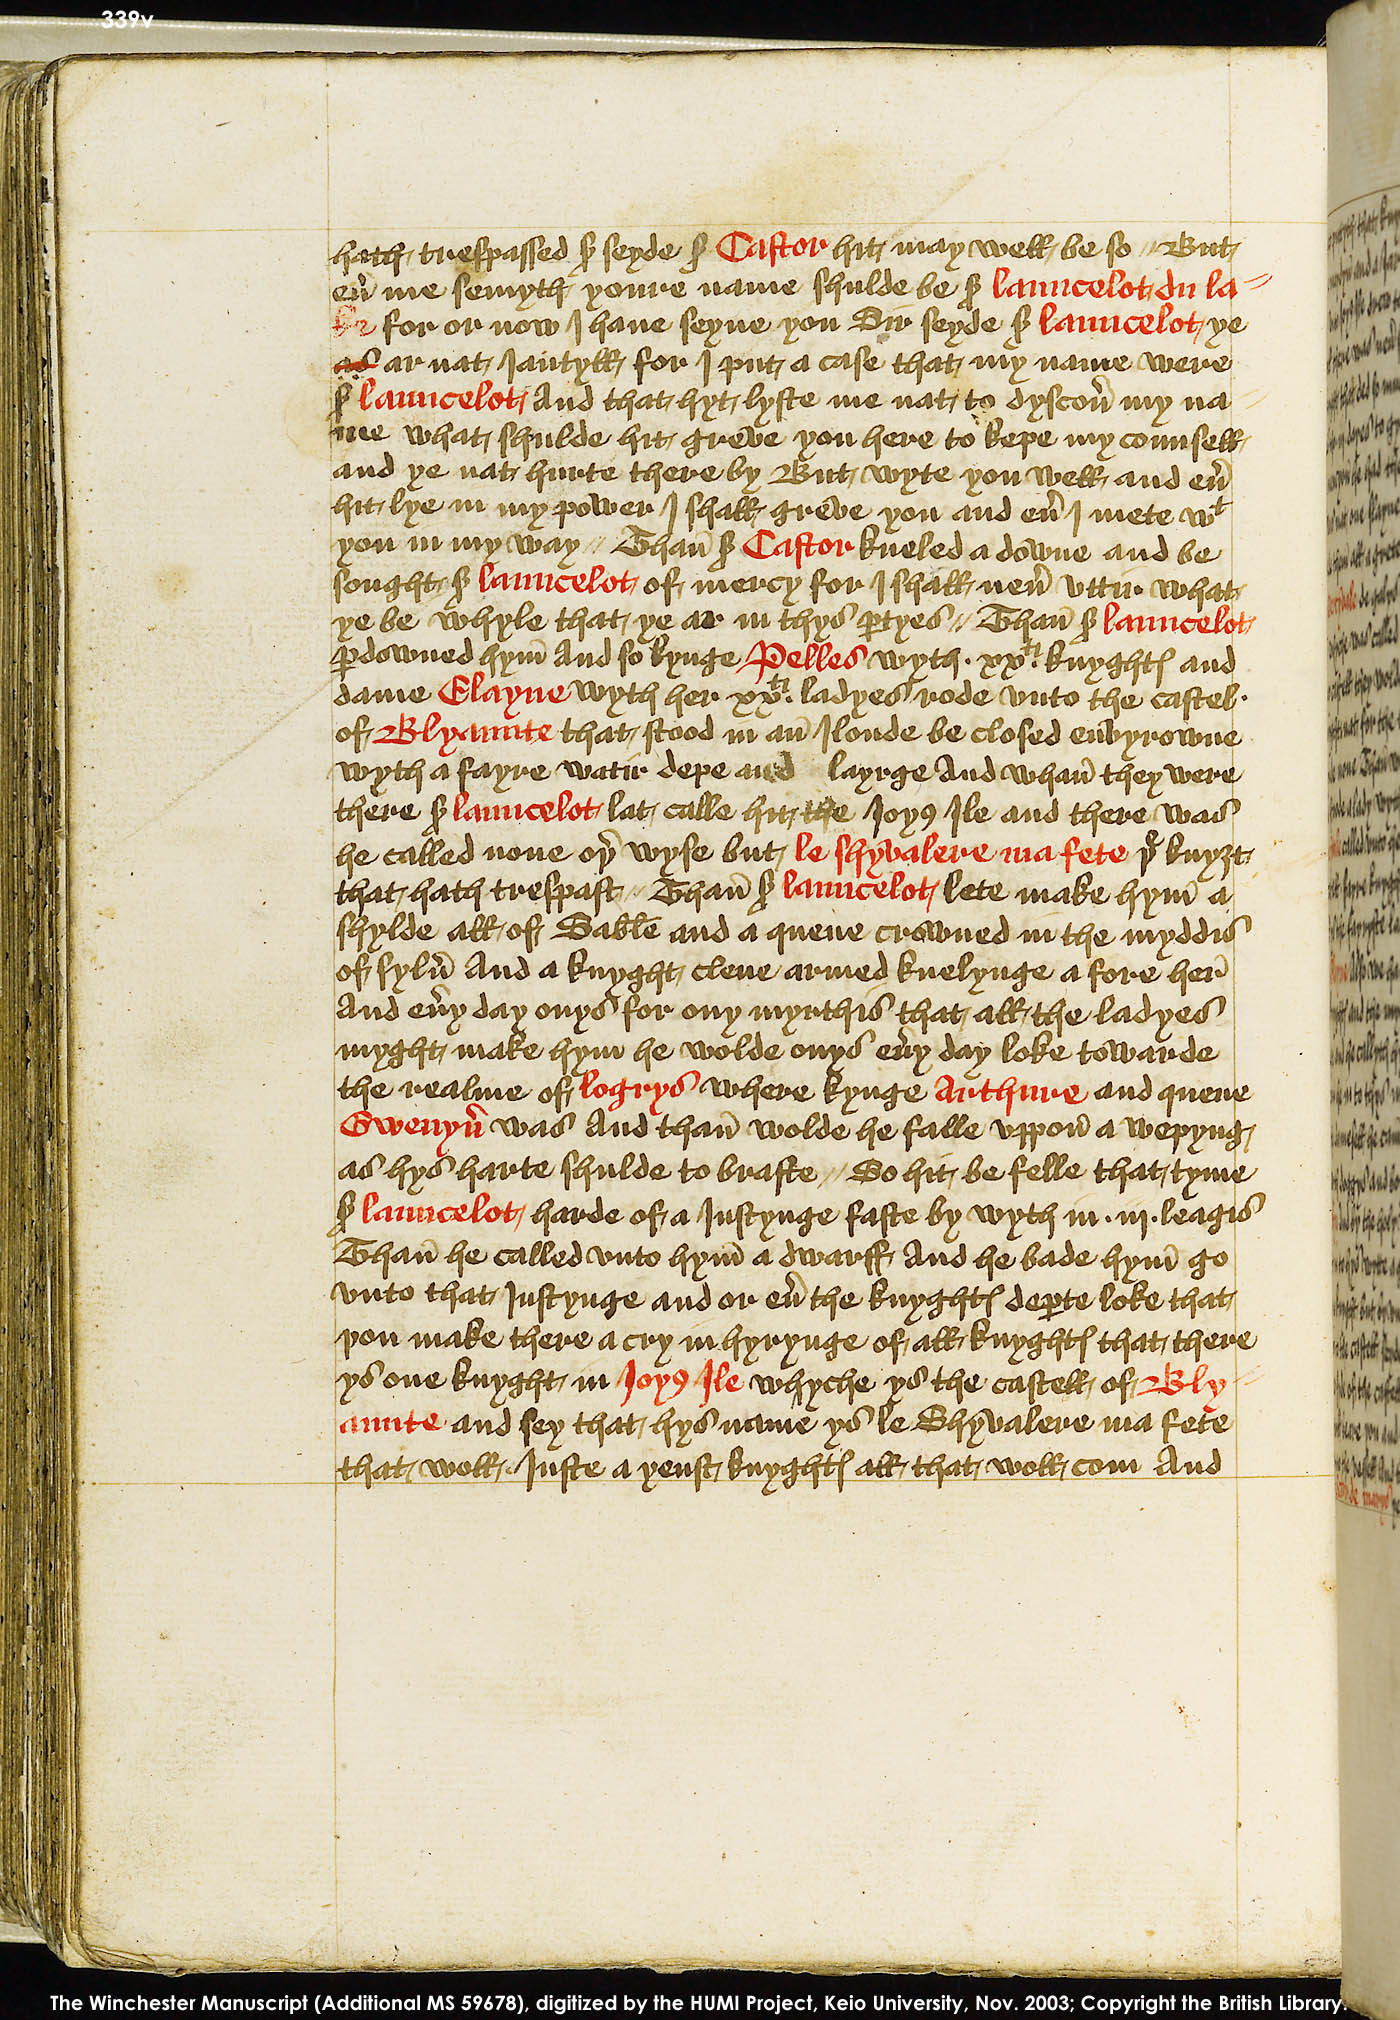 339v
hath trespassed sʳ seyde sʳ Castor hit may well be so // But
eũ me semyth youre name shulde be sʳ launcelot du la-
ke for or now I haue seyne you Sir seyde sʳ launcelot ye
as ar nat Jantyll for I put a case that my name were
sʳ launcelot And that hyt lyste me nat to dyscoũ my na-
me what shulde hit greve you here to kepe my counsell
and ye nat hurte there by But wyte you well and eũ
hit lye in my power I shall greve you and eũ I mete wᵗ
you in my way // Thañ sʳ Castor kneled a downe and be
sought sʳ launcelot of mercy for I shall neũ vttir what
ye be whyle that ye ar in thys ꝑtyes // Thañ sʳ launcelot
ꝑdowned hym̄ And so kynge Pelles wyth . xxᵗⁱ. knyghtꝭ and
dame Elayne wyth her xxᵗⁱ. ladyes rode vnto the castel
of Blyaunte that stood in añ Ilonde be closed envyrowne
wyth a fayre watir depe and layrge And whañ they were
there sʳ launcelot lat calle hit the Joyꝰ Ile and there was
he called none oþʳ wyse but le shyvalere ma fete þᵉ knyȝt
that hath trespast // Thañ sʳ launcelot lete make hym̄ a
shylde all of Sable and a quene crowned in the myddis
of sylũ And a knyght clene armed knelynge a fore her
And eũy day onys for ony myrthis that all the ladyes
myght make hym he wolde onys eũy day loke towarde
the realme of logrys where kynge Arthure and quene
Gwenyũ was And thañ wolde he falle vppoñ a wepyng
as hys harte shulde to braste // So hit be felle that tyme
sʳ launcelot harde of a Justynge faste by wyth in . iij . leagis
Thañ he called vnto hym̄ a dwarff And he bade hym̄ go
vnto that Justynge and or eũ the knyghtꝭ deꝑte loke that
you make there a cry in hyrynge of all knyghtꝭ that there
ys one knyght in Joyꝰ Ile whyche ys the castell of Bly
aunte and sey that hys name ys le Shyvalere ma fete
that woll . Juste a yenst knyghtꝭ all that woll com And
The Winchester Manuscript (Additional MS 59678), digitized by the HUMI Project, Keio University, Nov. 2003; Copyright the British Library.